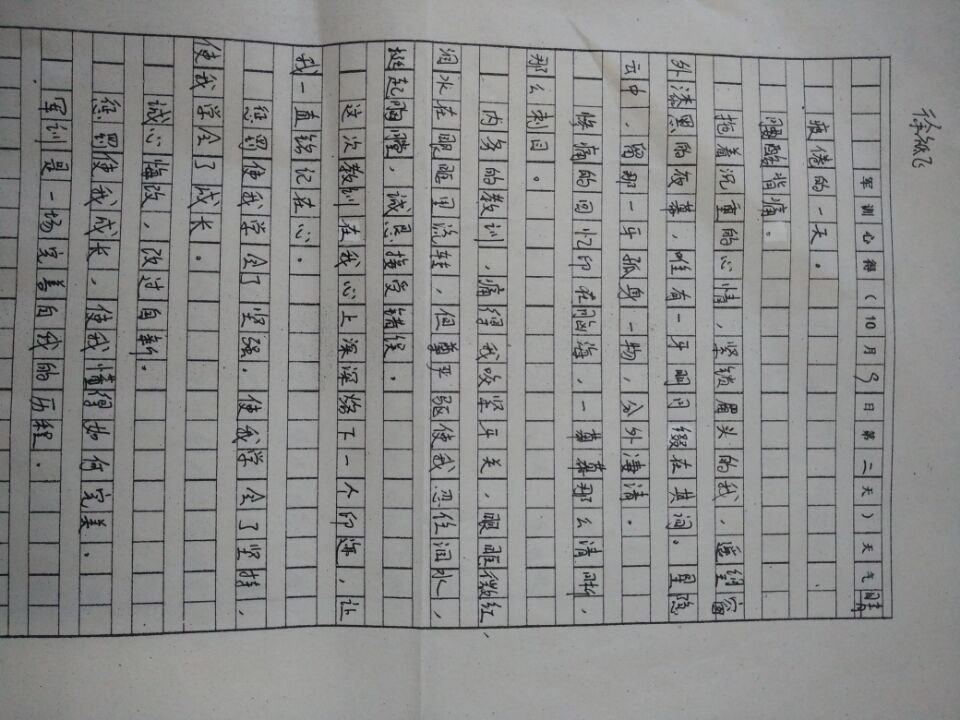 徐
军训心得（10月9日第二天）天气晴
疲倦的一天。
腰酸背痛。
拖着沉重的心情，紧锁眉头的我，遥望窗
外漆黑的夜幕，唯有一牙明月缀在其间。星隐
云中，留那一牙孤身一物，分外凄清。
悔痛的回忆印在脑海，一幕幕那么清晰，
那么刺目。
内务的教训，痛得我咬紧牙关，眼眶微红，
泪水在眼眶里流转，但尊乎驱使我忍住泪水，
挺起胸膛，诚恳接受错误。
这次教训在我心上深深烙下一个印迹，让
我一直铭记在心。
惩罚使我学会了坚强，使我学会了坚持，
使我学会了成长。
诚心悔改，改过自新。
惩罚使我成长，使我懂得如何完美。
军训是一场完善自我的历程。